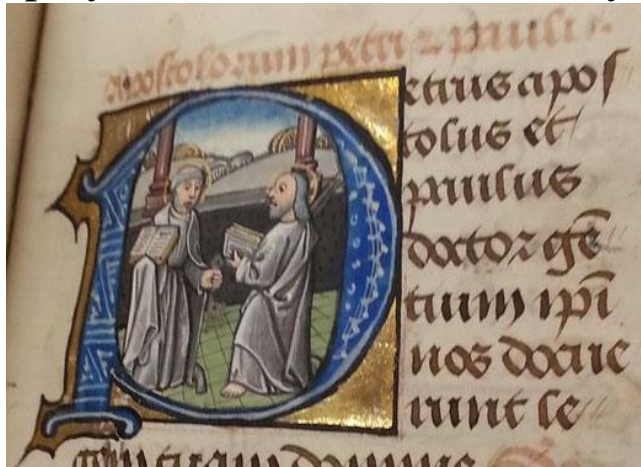 apostolorum petri ⁊ pauli
Petrus apos
tolus et
paulus
doctor gē
tium ipi̅
nos docue
runt le
gem tuam domine